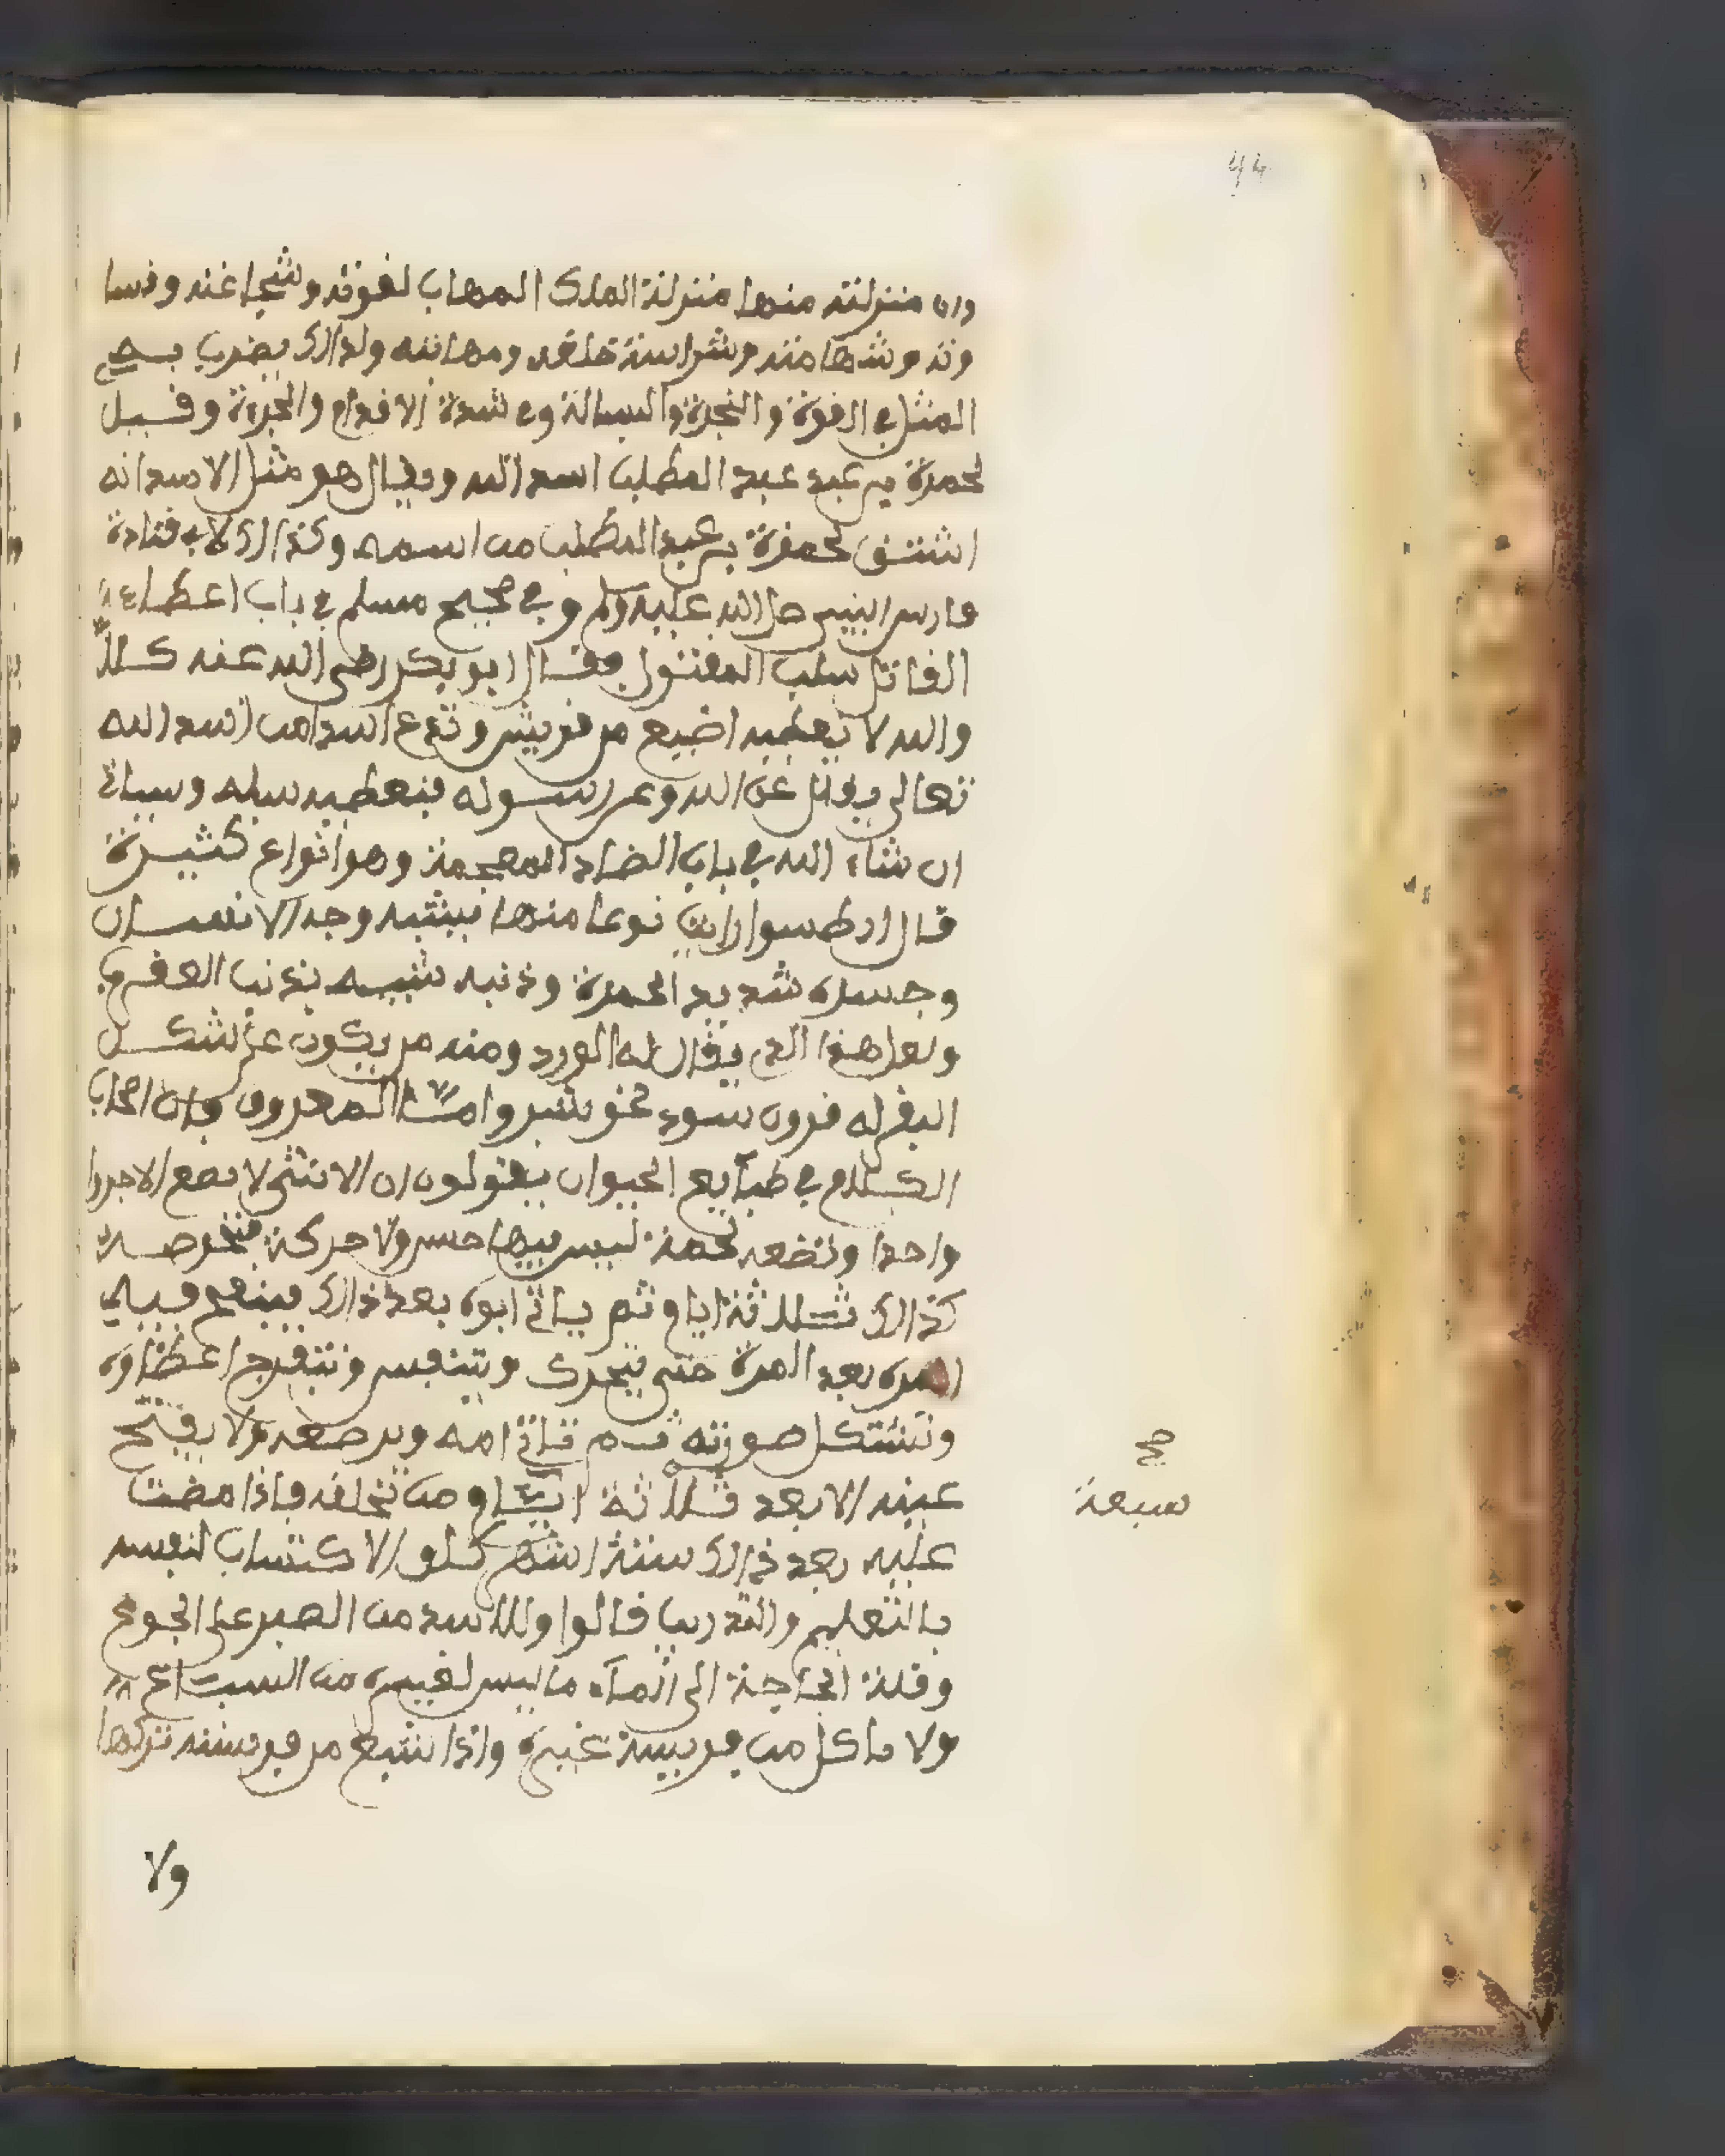 44
وان منزلته منها منزلة الملك المهاب لقوته وشجاعته وقسا
وته وشهامته وشراسة خلقه ومهابته ولذالك يضرب به
المثل في القوة والنجدة والبسالة وفي شدة الاقدام والجرءة وقيل
لحمزة بن عبد المطلب اسد الله ويقال هو مثل الاسد انه
اشتق لحمزة بن عبد المطلب من اسمه وكذالك لابي قتادة
فارس النبي صلى الله عليه وسلم وفي صحيح مسلم في باب اعطاء
القاتل سلب المقتول فقال ابو بكر رضي الله عنه كلا
والله لا نعطيه اضيبع من قريش وندع اسدا من اسد الله
تعالى يقاتل عن الله وعن رسوله فنعطيه سلبه وسياتي
ان شاء الله في باب الضاد المعجمة وهو انواع كثيرة
قال ارطسوا رايت نوعا منها يشبه وجه الانسان
وجسده شديد الحمرة وذنبه شبيه بذنب العقرب
ولعل هذا الذي يقال له الورد ومنه من يكون على شكل
البقر له قرون سود نحو شبر واما المعروف فان اصحاب
الكلام في طبايع الحيوان يقولون ان الانثى لا تضع الا جروا
واحدا وتضعه لحمة ليس فيها حس ولا حركة فتحرصه
كذالك ثلاثة ايام ثم ياتي ابوه بعد ذالك فينفخ فيه
المرة بعد المرة حتى يتحرك ويتنفس وتنفرج اعضاؤه
وتتشكل صورته ثم تاتي امه وترضعه ولا يفتح
عينيه الا بعد ثلاثة ايام من تخلقه فاذا مضت
صح
سبعة
عليه بعد ذالك ستة اشهر كلف الاكتساب لنفسه
بالتعليم والتدريب قالوا وللاسد من الصبر على الجوع
وقلة الحاجة الى الماء ما ليس لغيره من السباع
ولا ياكل من فريسة غيره واذا شبع من فريسته تركها
ولا